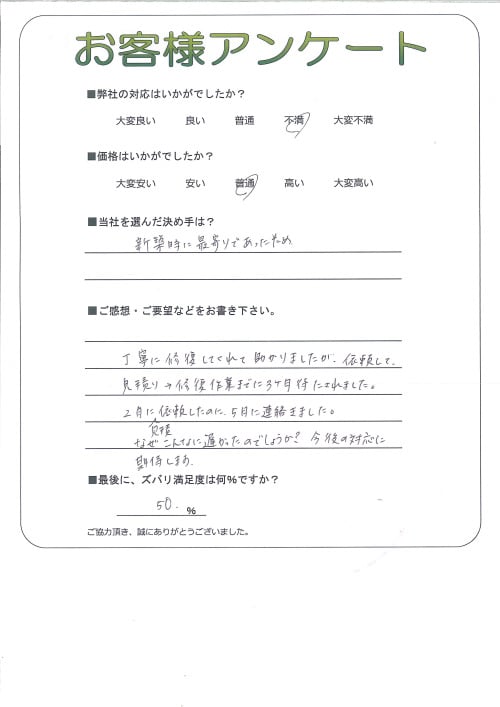 お客様アンケート
■弊社の対応はいかがでしたか？
大変良い 良い 普通 不満 大変不満
■価格はいかがでしたか？
大変安い 安い 普通 高い 大変高い
■当社を選んだ決め手は？
新築時に最寄りであったため
■ご感想・ご要望などをお書き下さい。
丁寧に修復してくれて助かりましたが、依頼して、
見積り→修復作業までに3ヶ月待たされました。
2月に依頼したのに、5月に連絡きました。
なぜこんなに遅かったのでしょうか？ 今後の対応に
期待します。
■最後に、ズバリ満足度は何％ですか？
50. ％
ご協力頂き、誠にありがとうございました。